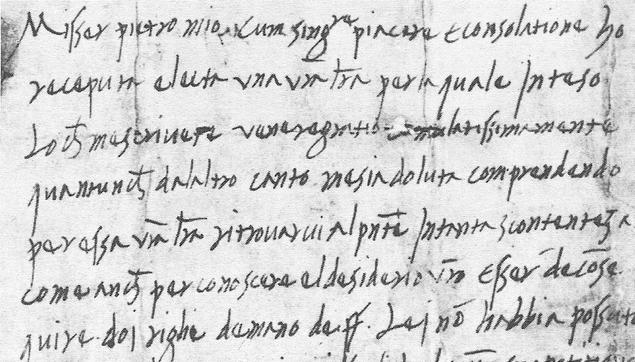 Misser pietro mio. Cum sing.re piacere E consolatione ho
receputa e lecta una vra lra per la quale Inteso
Lo q mescrivete ve ne regratio cumulatissimamente
quantunq dalaltro canto me sia doluta comprendendo
per essa vra lra ritrovarvi al pnte In tanta scontenteza
come anq per conoscere el desiderio vro Esser de cose
quire doi righe de mano de ff. Lei nō habbia possuto